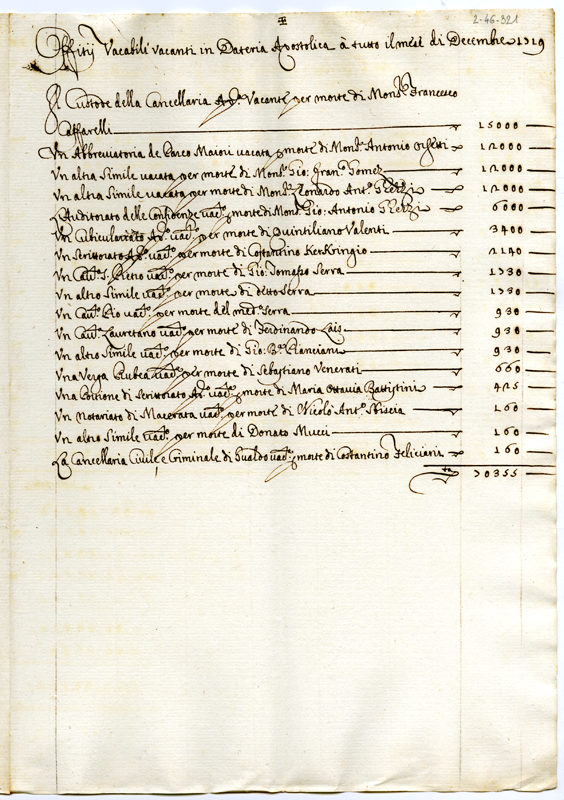 2-46-321
Offitij Vacabili vacanti in Dateria Apostolica à tutto il mese di Decembre 1719
Il Custode della Cancellaria Ap.ca Vacante per morte di Mons.r Francesco
Caffarelli 15000
Un Abbreviatoria de Parco Maiori vacata p morte di Mons.r Antonio 12000
Un altra Simile vacata per morte di Mons.r Gio: Fran.co Gomez 12000
Un altra Simile vacata per morte di Mons.r Leonardo Ant.o 12000
L'Auditorato delle Confidenze vac.o p morte di Mons.r Gio: Antonio 6000
Un Cubicularato Ap.o vac.o per morte di Quintiliano Valenti 3400
Un Scrittorato Ap.o vac.o per morte di Costantino KerKringio 2140
Un Cau.to S. Pietro vac.o per morte di Gio: Tomasso Serra 1730
Un altro Simile vac.o per morte di detto Serra 1730
Un Cau.to Pio vac.o per morte del med.o Serra 930
Un Cau.to Lauretano vac.o per morte di Ferdinando Lais 930
Un altro Simile vac.o per morte di Gio: B.a Pianciani 930
Una Verga Rubea vac.a per morte di Sebastiano Venerati 660
Una Porzione di Scrittorato Ap.o vac.a p morte di Maria Ottavia Battistini 425
Un Notariato di Macerata vac.o per morte di Nicolò Ant.o Sbiscia 160
Un altro Simile vac.o per morte di Donato Mucci 160
La Cancellaria Civile e Criminale di Gualdo vac.a p morte di Costantino Feliciani 160
70355